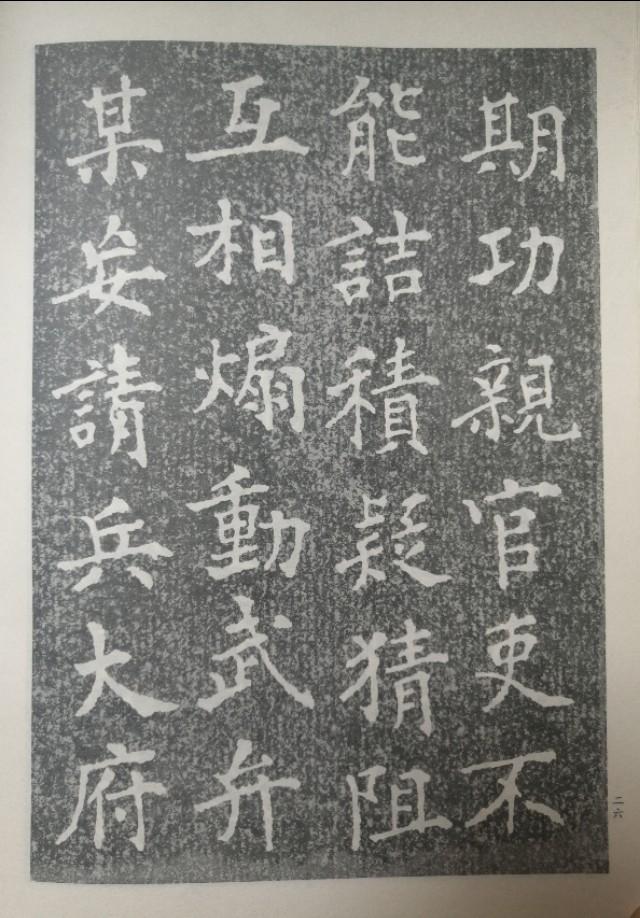 期功親官吏不
能詰積疑猜阻
互相煽動武弁
某妄請兵大府
二六